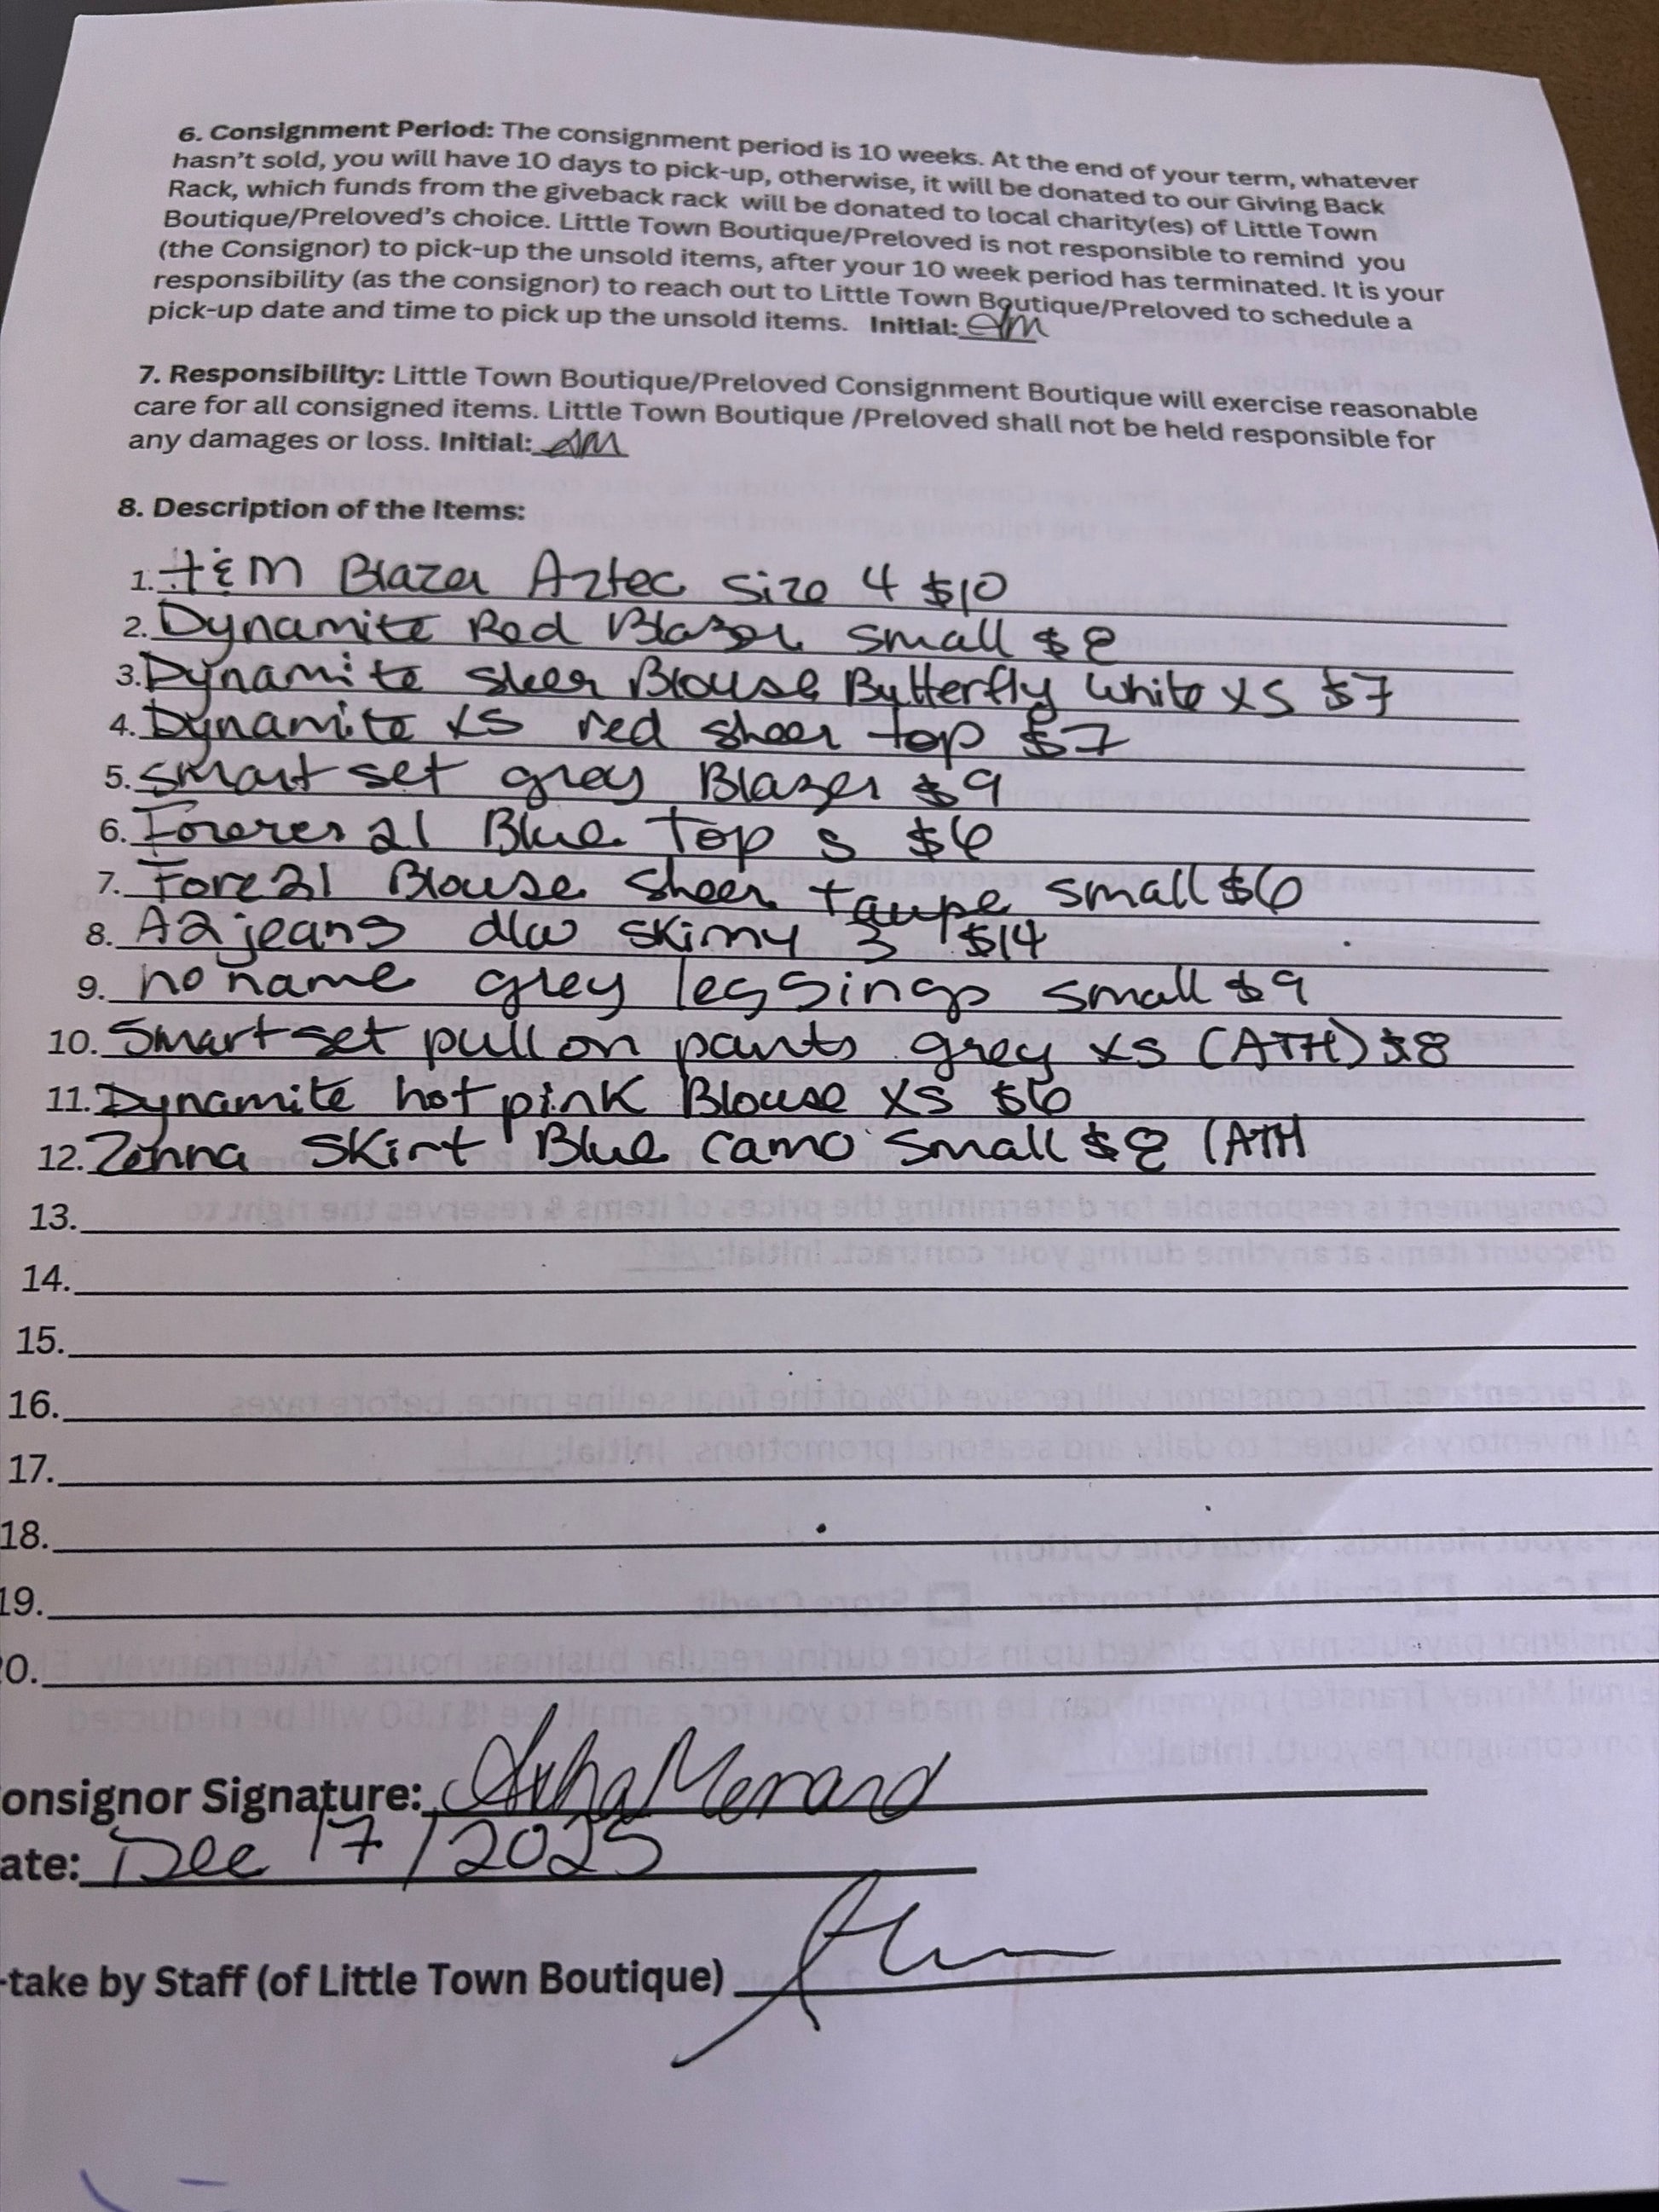 6. Consignment Period: The consignment period is 10 weeks. At the end of your term, whatever
hasn't sold, you will have 10 days to pick-up, otherwise, it will be donated to our Giving Back
Rack, which funds from the giveback rack will be donated to local charity(es) of Little Town
Boutique/Preloved's choice. Little Town Boutique/Preloved is not responsible to remind you
(the Consignor) to pick-up the unsold items, after your 10 week period has terminated. It is your
responsibility (as the consignor) to reach out to Little Town Boutique/Preloved to schedule a
pick-up date and time to pick up the unsold items. Initial: AM
7. Responsibility: Little Town Boutique/Preloved Consignment Boutique will exercise reasonable
care for all consigned items. Little Town Boutique /Preloved shall not be held responsible for
any damages or loss. Initial: AM
8. Description of the Items:
1. H&M Blazer Aztec size 4 $10
2. Dynamite Red Blazer small $8
3. Dynamite sheer Blouse Butterfly white XS $7
4. Dynamite XS red sheer top $7
5. smart set grey Blazer $9
6. Forever 21 Blue top s $6
7. Fore 21 Blouse sheer taupe small $6
8. A2jeans dlw skinny 3 $14
9. no name grey leggings small $9
10. Smart set pull on pants grey xs (ATH) $8
11. Dynamite hot pink Blouse XS $6
12. Zenna Skirt Blue Camo small $8 (ATH
13.
14.
15.
16.
17.
18.
19.
0.
onsignor Signature: Menard
ate: Dec 17/2025
-take by Staff (of Little Town Boutique)